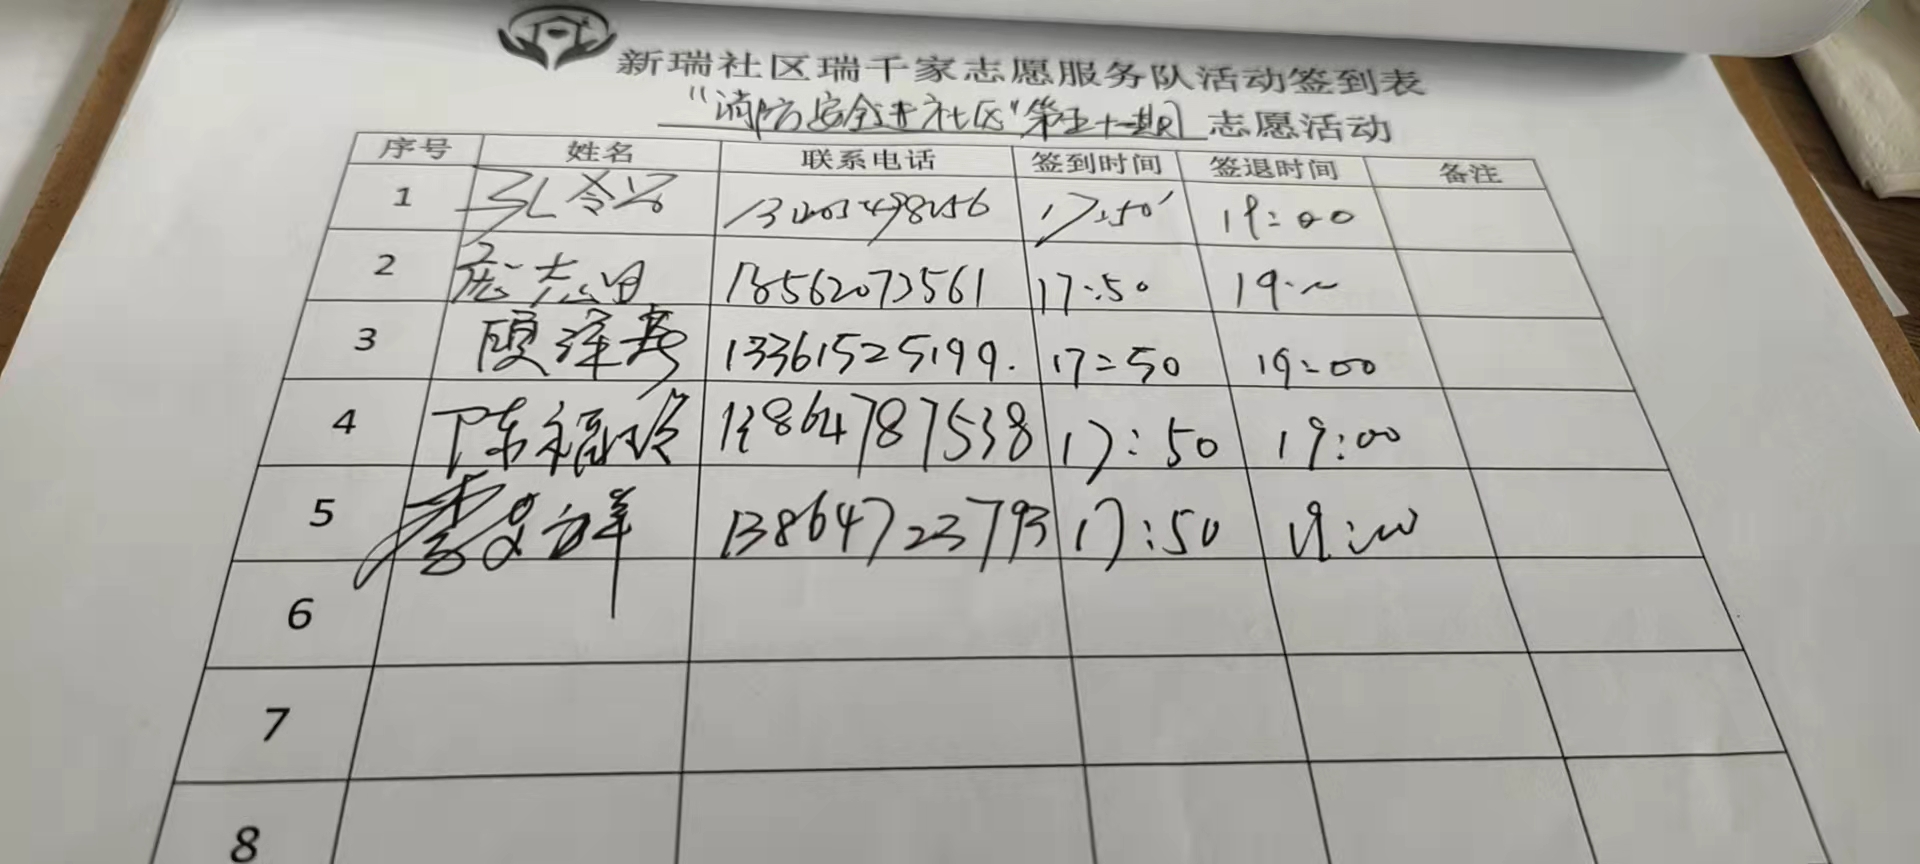 新瑞社区瑞千家志愿服务队活动签到表
“消防安全进社区”第五十一期 志愿活动
序号 姓名 联系电话 签到时间 签退时间 备注
1 17:50 19:00
2 18562073561 17:50 19:00
3 13361525199. 17:50 19:00
4 陈福玲 13864787538 17:50 19:00
5 13864723793 17:50 19:00
6
7
8